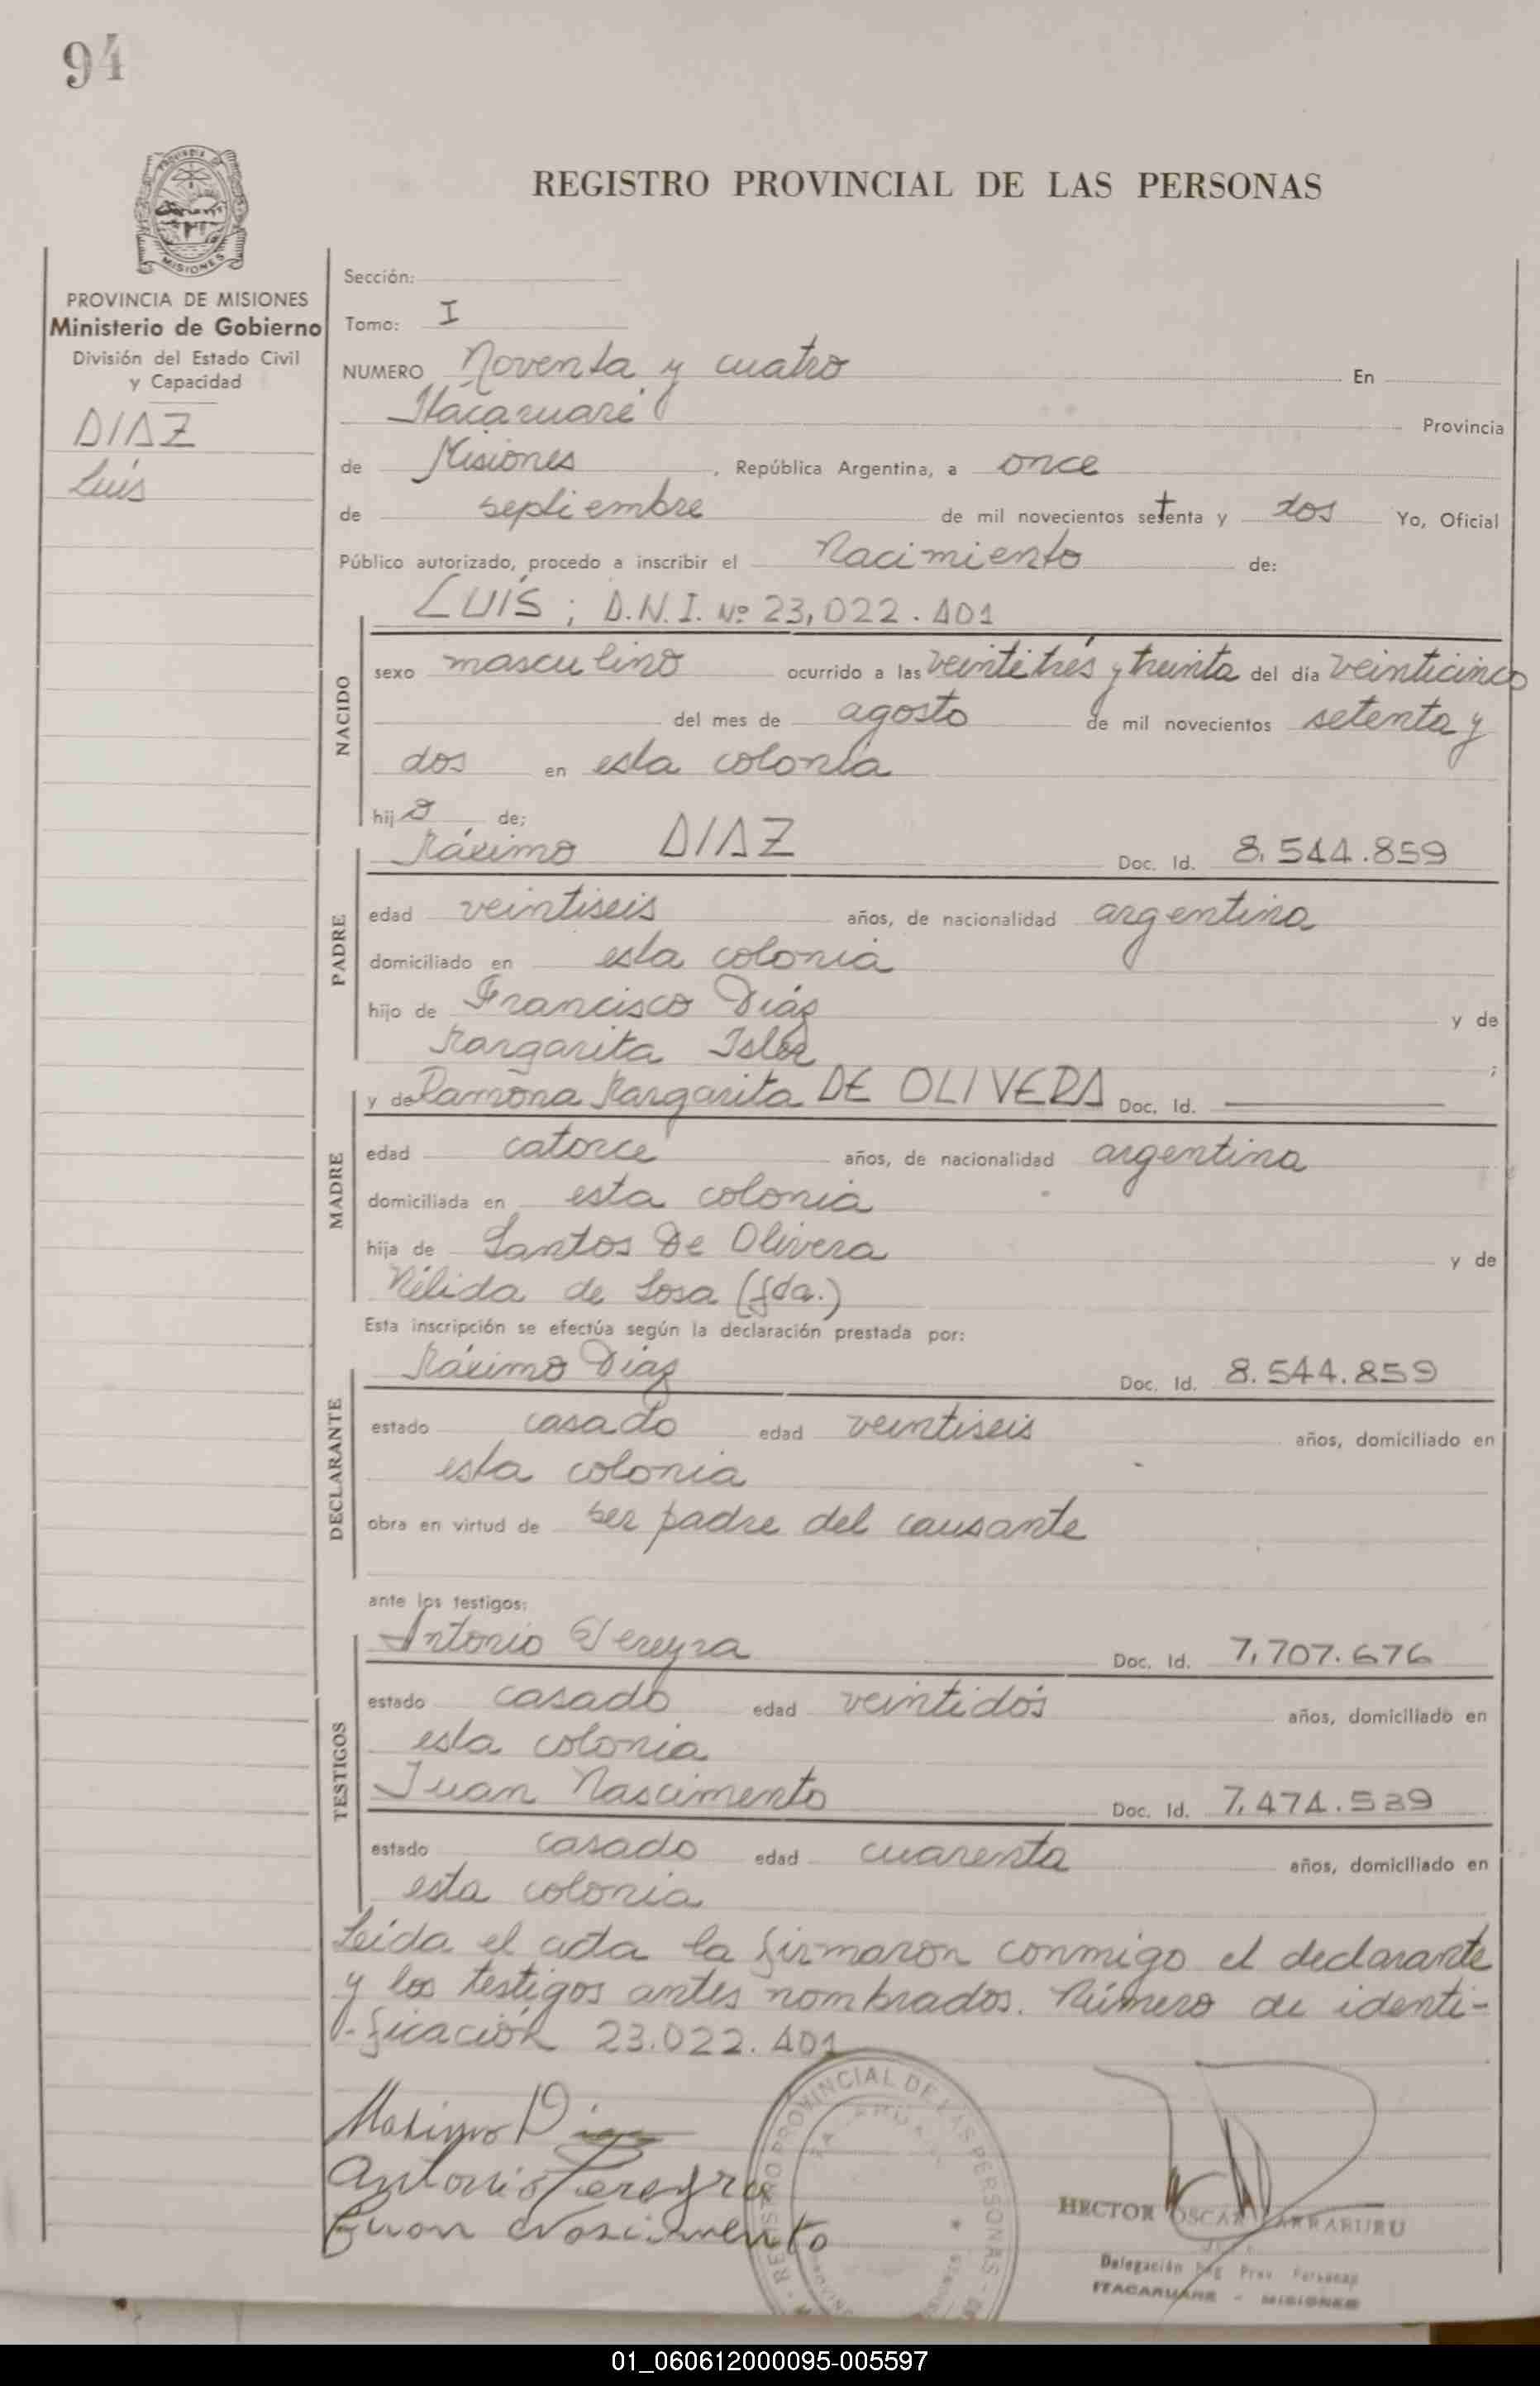 94
REGISTRO PROVINCIAL DE LAS PERSONAS
PROVINCIA
MISIONES
PROVINCIA DE MISIONES
Ministerio de Gobierno
División del Estado Civil
y Capacidad
DIAZ
Luís
Sección:
Tomo: I
NUMERO Noventa y cuatro En
Itacaruaré Provincia
de Misiones, República Argentina, a once
de septiembre de mil novecientos setenta y dos Yo, Oficial
Público autorizado, procedo a inscribir el Nacimiento de:
LUÍS; D.N.I. Nº 23,022.401
NACIDO
sexo masculino ocurrido a las veintitrés y treinta del día veinticinco
del mes de agosto de mil novecientos setenta y
dos en esta colonia
hijo de:
PADRE
Máximo DIAZ Doc. Id. 8.544.859
edad veintiseis años, de nacionalidad argentina
domiciliado en esta colonia
hijo de Francisco Díaz y de
Margarita Isler ;
MADRE
y de Ramona Margarita DE OLIVERA Doc. Id.
edad catorce años, de nacionalidad argentina
domiciliada en esta colonia
hija de Santos De Olivera y de
Nélida de Sosa (fda.)
Esta inscripción se efectúa según la declaración prestada por:
DECLARANTE
Máximo Díaz Doc. Id. 8.544.859
estado casado edad veintiseis años, domiciliado en
esta colonia
obra en virtud de ser padre del causante
ante los testigos:
TESTIGOS
Antonio Pereyra Doc. Id. 7,707.676
estado casado edad veintidós años, domiciliado en
esta colonia
Juan Nascimento Doc. Id. 7,474.539
estado casado edad cuarenta años, domiciliado en
esta colonia
Leída el acta la firmaron conmigo el declarante
y los testigos antes nombrados. Número de identi-
-ficación 23.022.401
Maximo Diaz
Antonio Pereyra
Juan Nascimento
REGISTRO PROVINCIAL DE LAS PERSONAS
HECTOR OSCAR
Delegación Reg. Prov. Personas
ITACARUARE - MISIONES
01_060612000095-005597